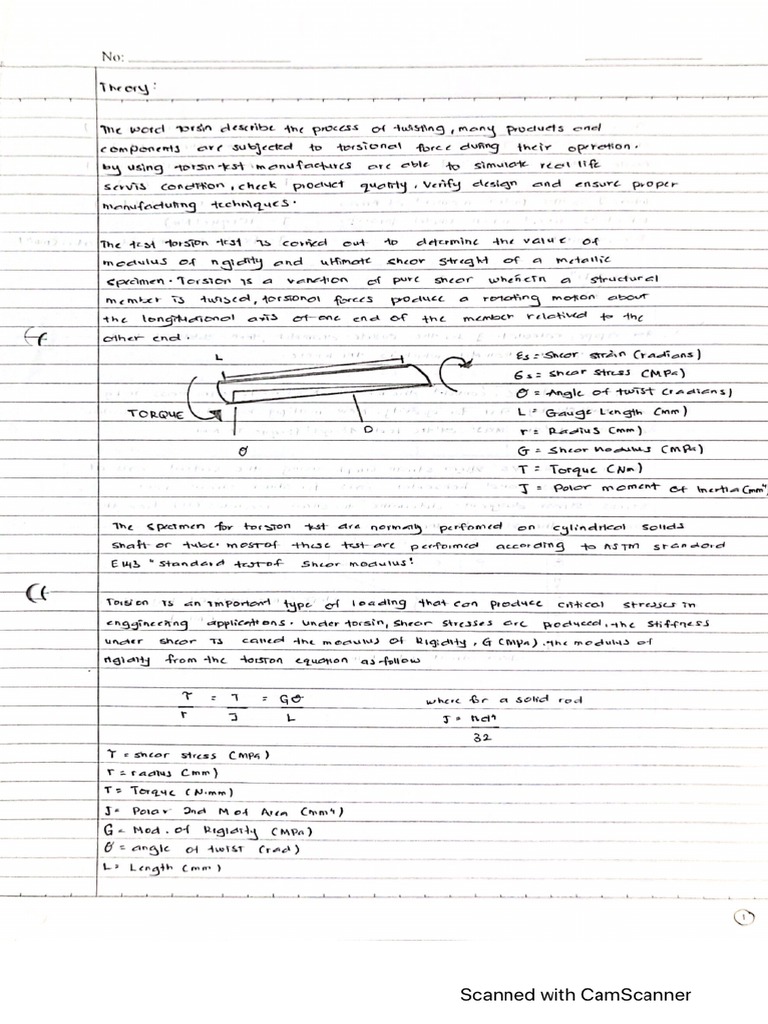 No:
Theory:
The word torsin describe the process of twisting, many products and
components are subjected to torsional force during their operation.
by using torsin test manufactures are able to simulate real life
servis condition, check product quality, verify design and ensure proper
manufacturing techniques.
The test torsion test is carried out to determine the value of
modulus of rigidity and ultimate shear streght of a metallic
specimen. Torsion is a variation of pure shear wherein a structural
member is twised, torsional forces produce a rotating motion about
the longitudional axis of one end of the member relatived to the
other end.
L
TORQUE
D
θ
Es = Shear strain (radians)
Gs = Shear stress (MPa)
θ = Angle of twist (radians)
L = Gauge Length (mm)
r = Radius (mm)
G = Shear modulus (MPa)
T = Torque (Nm)
J = Polar moment of Inertia (mm⁴
The specimen for torsion test are normally performed on cylindrical solids
shaft or tube. most of these test are performed according to ASTM standard
E143 "Standard test of Shear modulus!
Torsion is an important type of loading that can produce critical stresses in
enggineering applications. Under torsin, shear stresses are produced. the stiffness
under shear is called the modulus of Rigidity, G (MPa). the modulus of
rigidity from the torsion equation as follow
τ/r = T/J = Gθ/L where for a solid rod
J = πd⁴/32
τ = shear stress (MPa)
r = radius (mm)
T = Torque (N.mm)
J = Polar 2nd M of Area (mm⁴)
G = Mod. of Rigidity (MPa)
θ = angle of twist (rad)
L = Length (mm)
1
Scanned with CamScanner